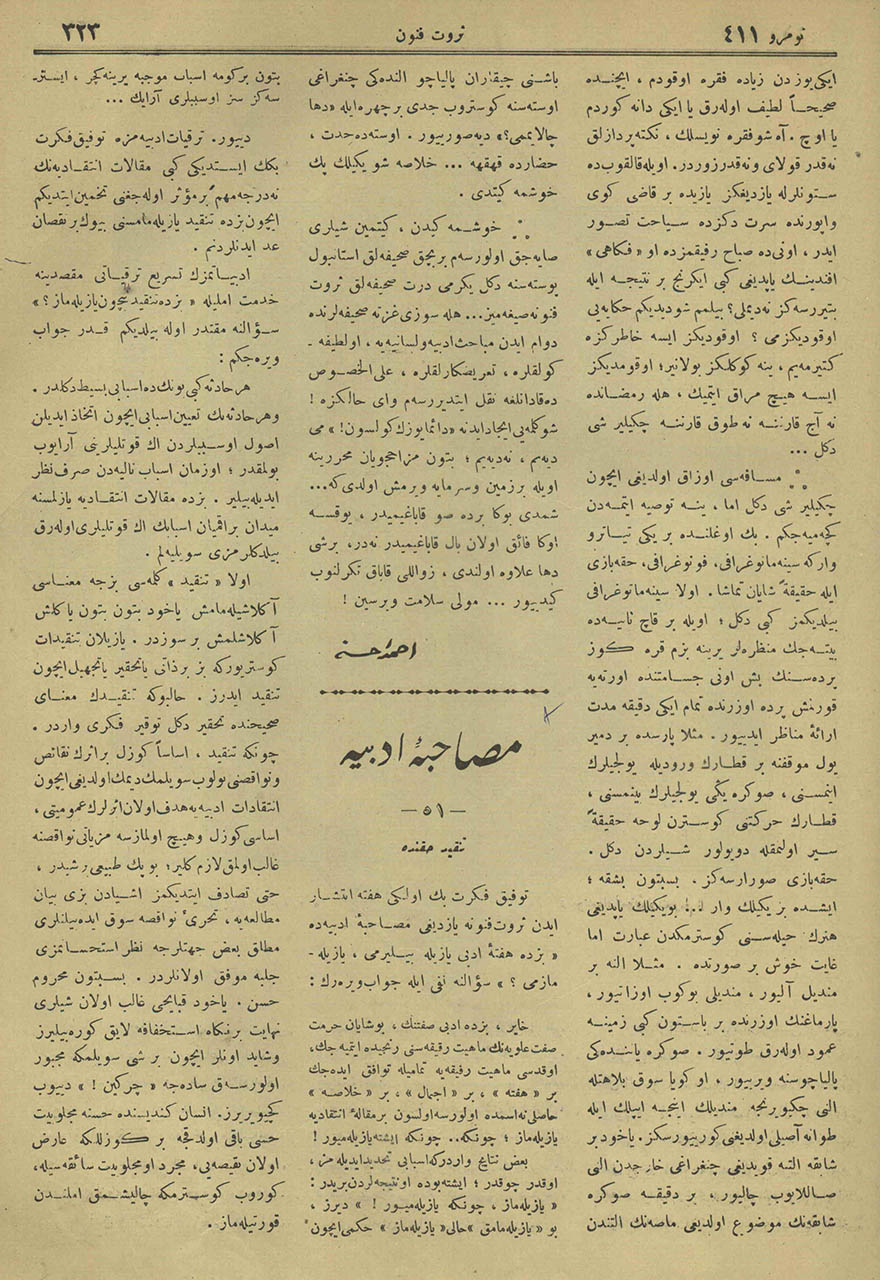 نومرو ٤١١
ثروت فنون
٣٢٣
ایکی‌یوزدن زیاده فقره اوقودم ، ایچنده
صحیحاً لطیف اوله‌رق یا ایکی دانه کوردم
یا اوچ . آه شو فقره نویسلك ، نکته پردازلق
نه‌قدر قولای ونه‌قدر زوردر. اویله قالقوب‌ده
ستونلرله یازدیغکز یازیده بر قاضی کوی
واپورنده سرت دکزده سیاحت تصور
ایدر ، اونی‌ده صباح رفیقمزده او « فکاهی »
افندینك یاپدیغی کبی ایکرنج بر نتیجه ایله
بتیررسه‌کز نه‌دیملی؟ بیلمم شودیدیکم حکایه‌یی
اوقودیکزمی ؟ اوقودیکز ایسه خاطرکزه
کتیرمه‌یم ، ینه کوکلکز بولانیر؛ اوقومدیکز
ایسه هیچ مراق ایتمیك ، هله رمضانده
نه آچ قارننه نه طوق قارننه چکیلیر شی
دکل ...
مسافه‌سی اوزاق اولدیغی ایچون
چکیلیر شی دکل اما ، ینه توصیه ایتمه‌دن
کچه‌میه‌جکم . بك اوغلنده بر یکی تیاترو
وارکه سینه‌ماتوغرافی، فونوغرافی، حقه‌بازی
ایله حقیقةً شایان تماشا . اولا سینه‌ماتوغرافی
بیلدیکمز کبی دکل ؛ اویله بر قاچ ثانیه‌ده
بیته‌جك منظره‌لر یرینه بزم قره کوز
پرده‌سنك بش اونی جسامتنده اورته‌یه
قورنمش پرده اوزرنده تمام ایکی دقیقه مدت
ارائۀ مناظر ایدییور . مثلا پارسده بر دمیر
یول موقفنه بر قطارك ورودیله یولجیلرك
اینمسنی ، صوکره یکی یولجیلرك بینمسنی ،
قطارك حرکتنی کوسترن لوحه حقیقةً
سیر اولنمقله دویولور شیلردن دکل .
حقه‌بازی صورارسه‌کز . بسبتون بشقه ؛
ایشده بر یکیلك وار ..! بو یکیلك یاپدیغی
هنرك حیله‌سنی کوسترمکدن عبارت اما
غایت خوش بر صورتده . مثلا النه بر
مندیل آلیور ، مندیلی بوکوب اوزاتیور ،
پارماغنك اوزرنده بر باستون کبی زمینه
عمود اوله‌رق طوتیور . صوکره یاننده‌کی
پالیاچوسنه ویرییور ، او کویا سوق بلاهتله
الی چکیویرنجه مندیلك اینجه ایپلك ایله
طوانه آصیلی اولدیغی کورییورسکز. یاخود بر
شابقه التنه قویدیغی چنغراغی خارجدن الی
صاللایوب چالیور ، بر دقیقه صوکره
شابقه‌نك موضوع اولدیغی ماصه‌نك التندن
باشنی چیقاران پالیاچو النده‌کی چنغراغی
اوسته‌سنه کوستروب جدی بر چهره‌ایله «دها
چالایممی؟» دیه صورییور . اوسته‌ده حدت ،
حضارده قهقهه ... خلاصه شو یکیلك پك
خوشمه کیتدی .
خوشمه کیدن ، کیتمین شیلری
صایه‌جق اولورسه‌م بربچق صحیفه‌لق استانبول
پوسته‌سنه دکل یکرمی درت صحیفه‌لق ثروت
فنونه صیغه‌میز... هله سوزی غزته صحیفه‌لرنده
دوام ایدن مباحث ادبیه ولسانیه‌یه ، اولطیفه ـ
کولقلره ، تعریضکارلقلره ، علی‌الخصوص
ده‌قادانلغه نقل ایتدیررسه‌م وای حالکزه !
شو کلمه‌یی ایجاد ایدنه «دائما یوزك کولسون!» می
دیه‌یم ، نه‌دیه‌یم ؛ بتون مزاحجویان محررینه
اویله برزمین وسرمایه ویرمش اولدی‌که...
شمدی بوکا برده صو قاباغیمیدر ، یوقسه
اوکا فائق اولان بال قاباغیمیدر نه‌در، برشی
دها علاوه اولندی ، زواللی قاباق تکرلنوب
کیدییور ... مولی سلامت ویرسین !
احمد احسان
مصاحبۀ ادبیه
— ٥١ —
تنقید حقنده
توفیق فکرت بك اولکی هفته انتشار
ایدن ثروت‌فنونه یازدیغی مصاحبۀ ادبیه‌ده
« بزده هفتۀ ادبی یازیله بیلیرمی ، یازیله ـ
مازمی ؟ » سؤالنه نفی ایله جواب ویره‌رك :
خایر ، بزده ادبی صفتنك ، بوشایان حرمت
صفت علویه‌نك ماهیت رقیقه‌سنی رنجیده ایتمیه‌جك،
اوقدسی ماهیت رفیعه‌یه تمامیله توافق ایده‌جك
بر « هفته » ، بر « اجمال » ، بر « خلاصه »
حاصلی نه‌اسمده اولورسه‌اولسون برمقالۀ انتقادیه
یازیله‌ماز ؛ چونکه.. چونکه ایشته‌یازیله‌میور !
بعض نتایج واردرکه‌اسبابی تحدیدایدیله‌مز ،
اوقدر چوقدر ؛ ایشته‌بوده اونتیجه‌لردن‌بریدر :
« یازیله‌ماز ، چونکه یازیله‌میور ! » دیرز ،
بو « یازیله‌مامق »حالی« یازیله‌ماز » حکمی‌ایچون
بتون برکومه اسباب موجبه یرینه‌کچر ، ایسترـ
سه‌کز سز اوسببلری آرایك ...
دییور. ترقیات ادبیه‌مزه توفیق‌فکرت
بکك ایستدیکی کبی مقالات انتقادیه‌نك
نه‌درجه‌مهم بر مؤثر اوله‌جغی تخمین‌ایتدیکم
ایچون بزده تنقید یازیله‌مامسنی بیوك برنقصان
عد ایدنلردنم .
ادبیاتمزك تسریع ترقیاتی مقصدینه
خدمت املیله « بزده تنقید نیچون یازیله‌ماز ؟ »
سؤالنه مقتدر اوله بیلدیکم قدر جواب
ویره‌جکم :
هرحادثه کبی بونك‌ده اسبابی بسیط دکلدر .
وهر حادثه‌نك تعیین اسبابی ایچون اتخاذ ایدیلن
اصول اوسببلردن اك قوتلیلرینی آرایوب
بولمقدر ؛ اوزمان اسباب تالیه‌دن صرف‌نظر
ایدیله‌بیلیر . بزده مقالات انتقادیه یازلمسنه
میدان براقمیان اسبابك اك قوتلیلری‌اوله‌رق
بیلدکلرمزی سویلیه‌لم .
اولا « تنقید » کلمه‌سی بزجه معناسی
آکلاشیله‌مامش یاخود بتون بتون یاکلش
آکلاشلمش بر سوزدر . یازیلان تنقیدات
کوستریورکه بز برذاتی یاتحقیر یاتجهیل‌ایچون
تنقید ایدرز . حالبوکه تنقیدك معنای
صحیحنده تحقیر دکل توقیر فکری واردر .
چونکه تنقید ، اساساً کوزل براثرك نقائص
ونواقصنی بولوب سویلمك دیمك اولدیغی‌ایچون
انتقادات ادبیه‌یه‌هدف اولان اثرلرك عمومیتی،
اساسی کوزل وهیچ اولمازسه مزیاتی نواقصنه
غالب اولمق لازم کلیر؛ بو پك طبیعی برشیدر ،
حتی تصادف ایتدیکمز اشیادن بزی بیان
مطالعه‌یه ، تحرئ نواقصه سوق ایده‌بیلنلری
مطلق بعض جهتلرجه نظر استحسانمزی
جلبه موفق اولانلردر . بسبتون محروم
حسن . یاخود قبایحی غالب اولان شیلری
نهایت برنکاه استخفافه لایق کوره‌بیلیرز
وشاید اونلر ایچون بر شی سویلمکه مجبور
اولورسه‌ق ساده‌جه « چرکین ! » دییوب
کچیویریرز . انسان کندیسنده حسنه مجلوبیت
حسی باقی اولدقجه بر کوزللکه عارض
اولان نقیصه‌یی، مجرد اومجلوبیت سائقه‌سیله،
کوروب کوسترمکه چالیشمق املندن
قورتیله‌ماز .